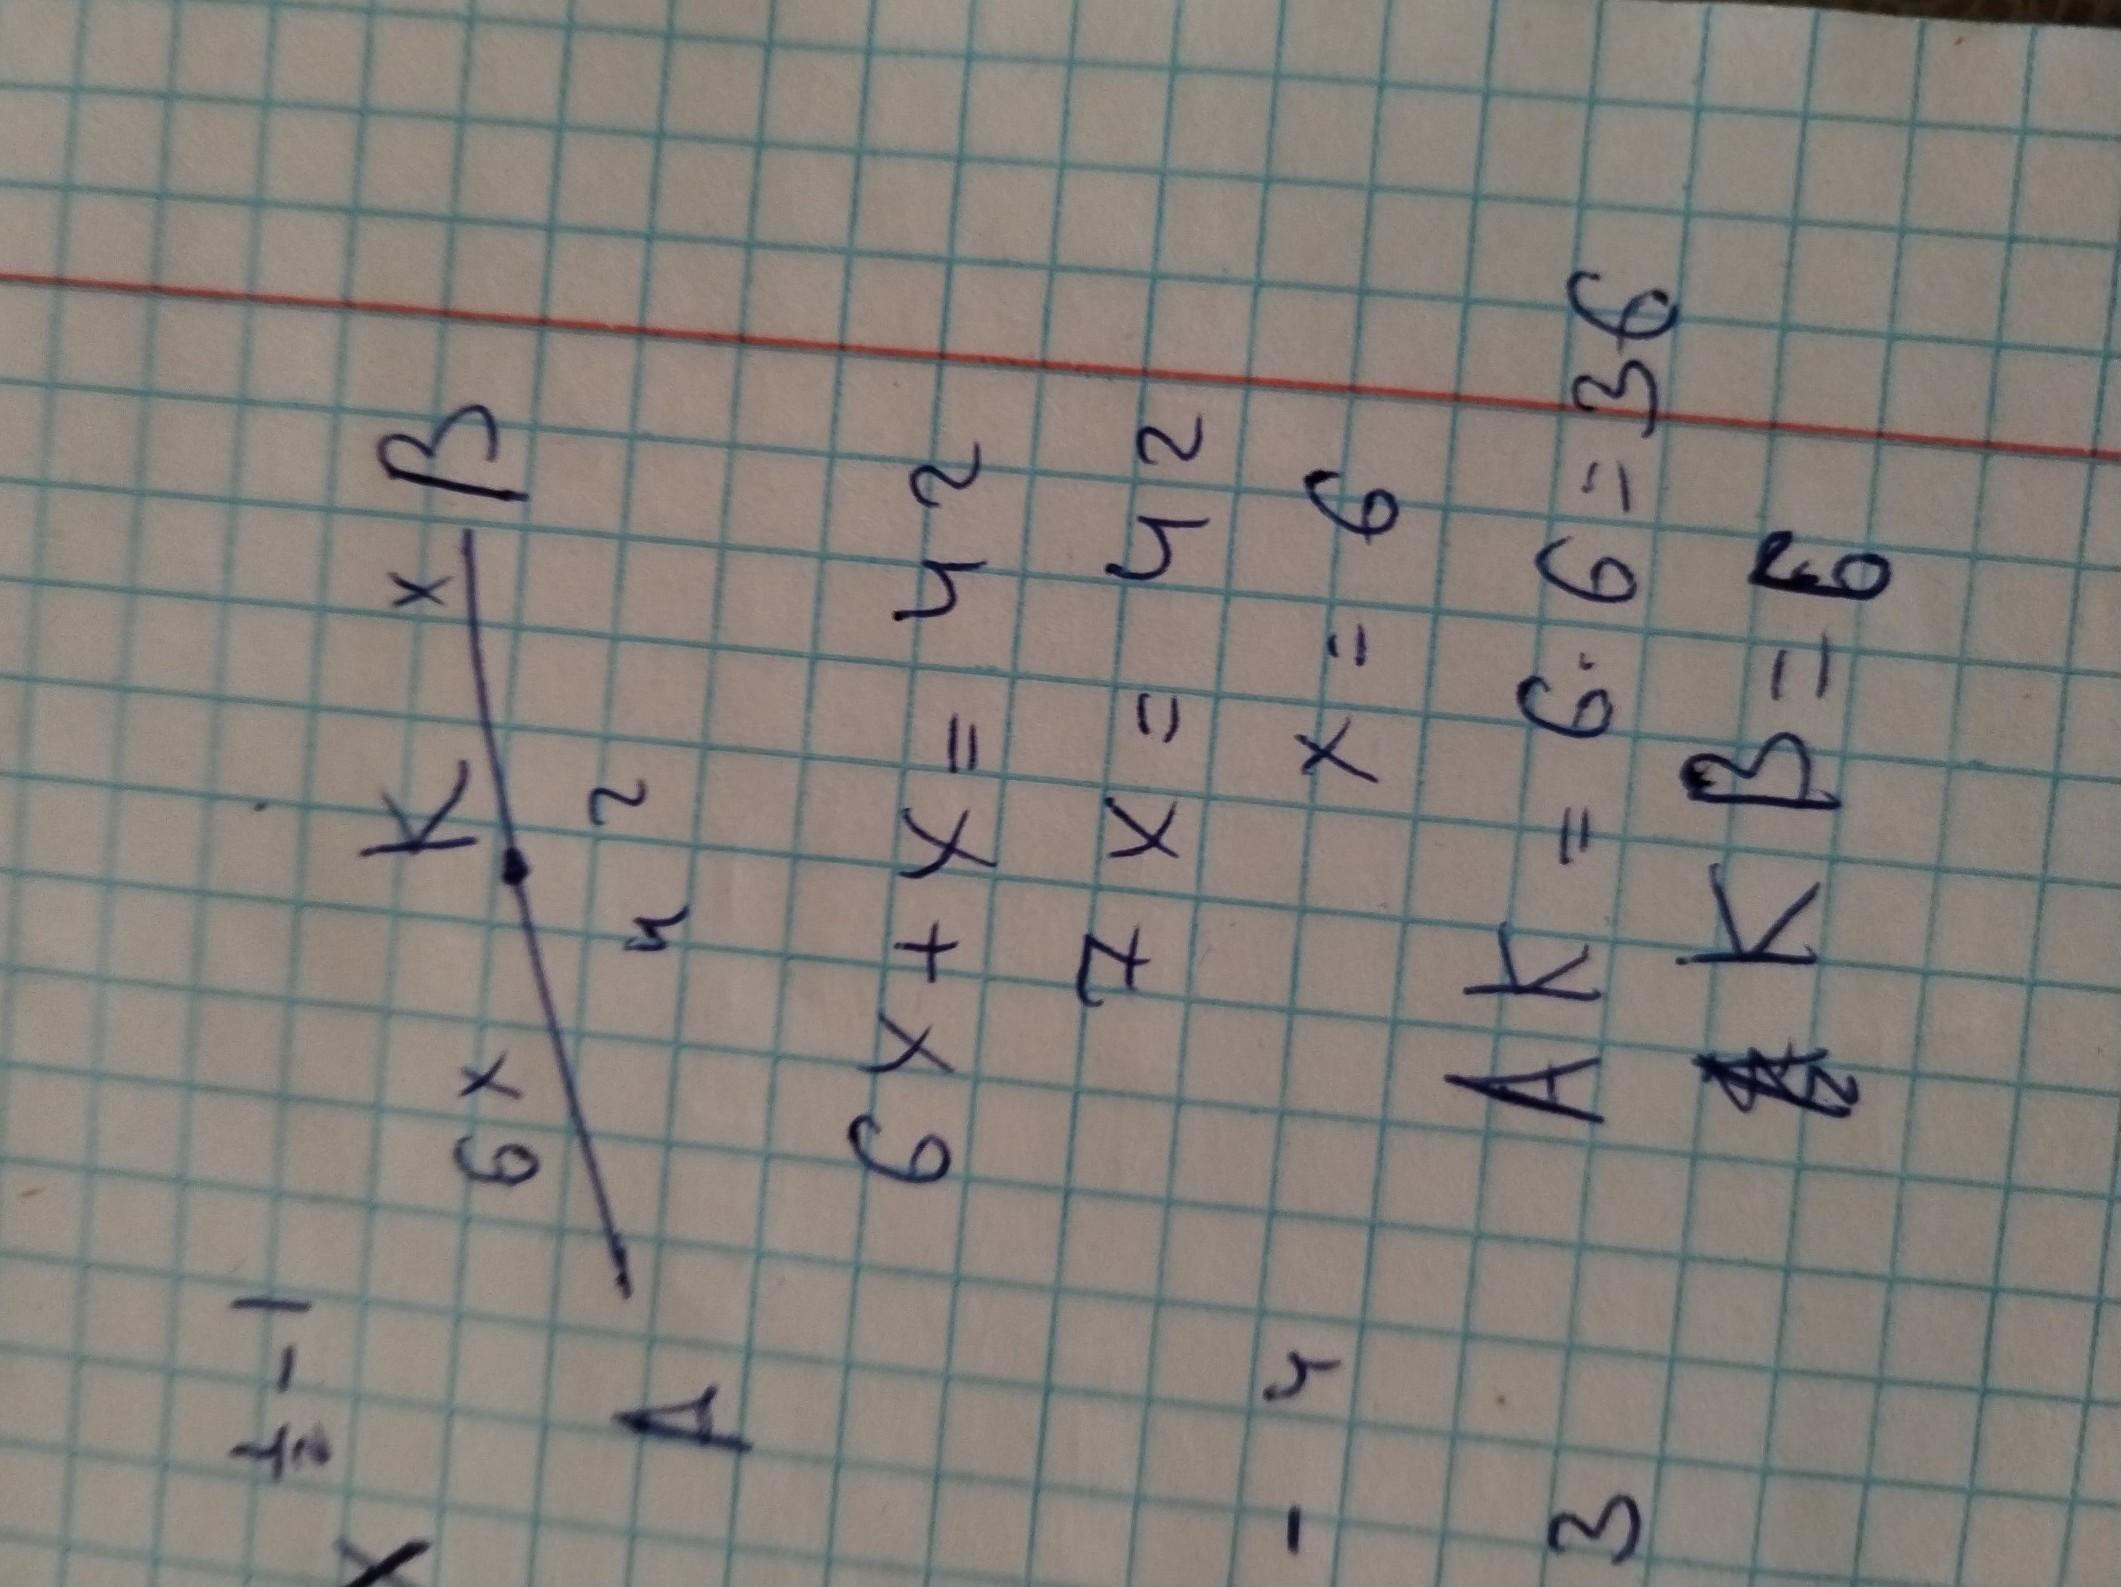 ½ - 1
6x K x B
A 42
6x + x = 42
7x = 42
- 4
x = 6
3
AK = 6 · 6 = 36
KB = 6